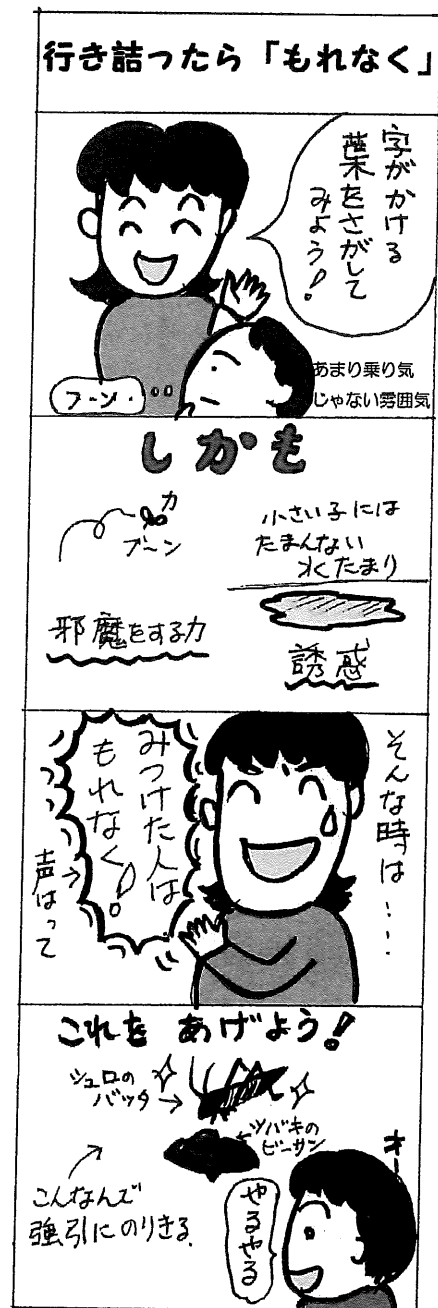 行き詰ったら「もれなく」
字がかける
葉をさがして
みよう!
フーン・・・・
あまり乗り気
じゃない雰囲気
しかも
カ
ブーン
邪魔をする力
小さい子には
たまんない
水たまり
誘惑
そんな時は・・・
みつけた人は
もれなく!
声はって
これを あげよう!
シュロの
バッタ→
←ツバキの
ビーサン
こんなんで
強引にのりきる.
オー
やるやる